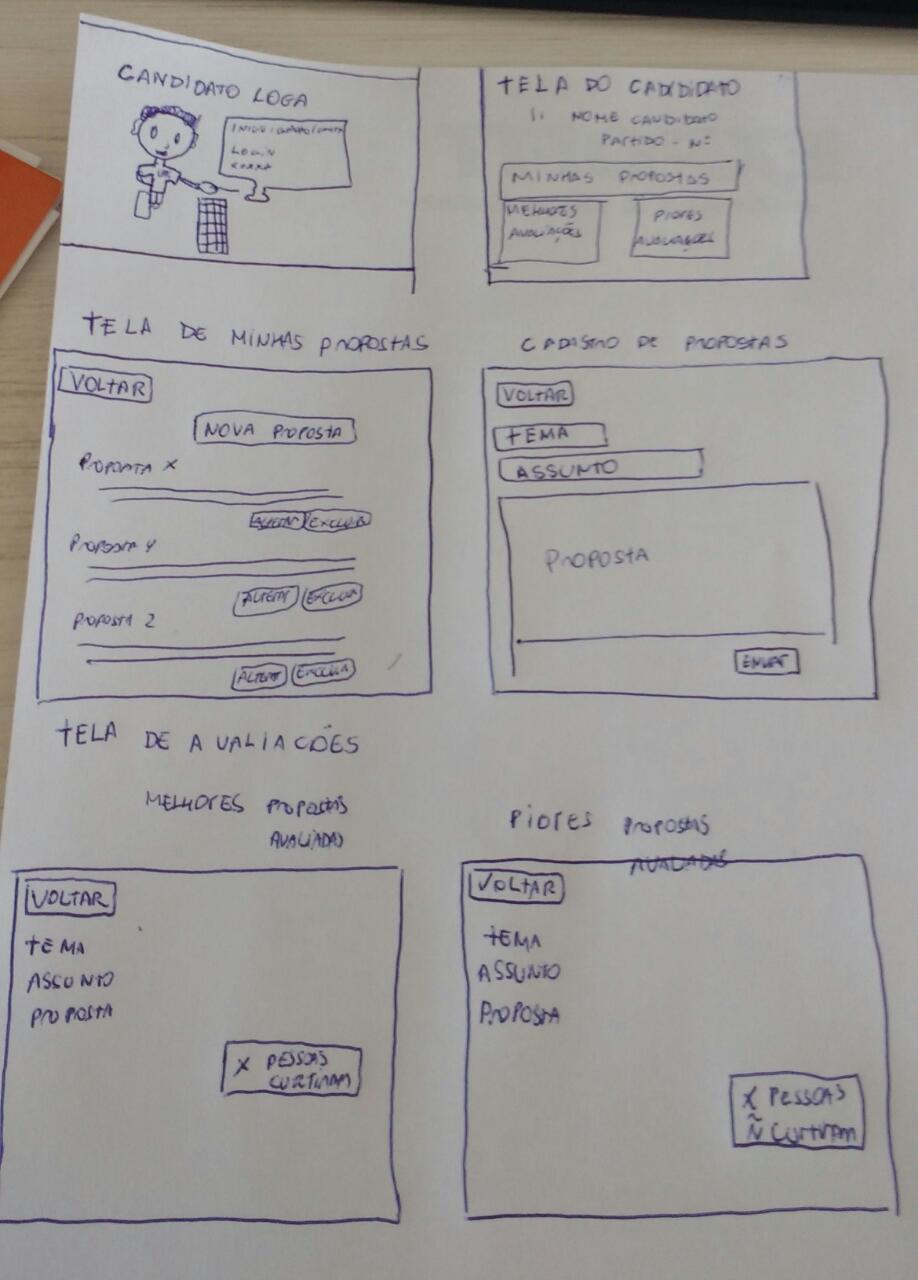 CANDIDATO LOGA
LOGIN
TELA DO CADIDIDATO
1. NOME CANDIDATO
PARTIDO - Nº
MINHAS PROPOSTAS
MELHORES
AVALIAÇÕES
PIORES
AVALIAÇÕES
TELA DE MINHAS PROPOSTAS
VOLTAR
NOVA PROPOSTA
PROPOSTA X
ALTERAR EXCLUIR
PROPOSTA Y
ALTERAR EXCLUIR
PROPOSTA Z
ALTERAR EXCLUIR
CADASTRO DE PROPOSTAS
VOLTAR
TEMA
ASSUNTO
PROPOSTA
ENVIAR
TELA DE AVALIACÕES
MELHORES PROPOSTAS
AVALIADAS
VOLTAR
TEMA
ASSUNTO
PROPOSTA
X PESSOAS
CURTIRAM
PIORES PROPOSTAS
AVALIADAS
VOLTAR
TEMA
ASSUNTO
PROPOSTA
X PESSOAS
Ñ CURTIRAM